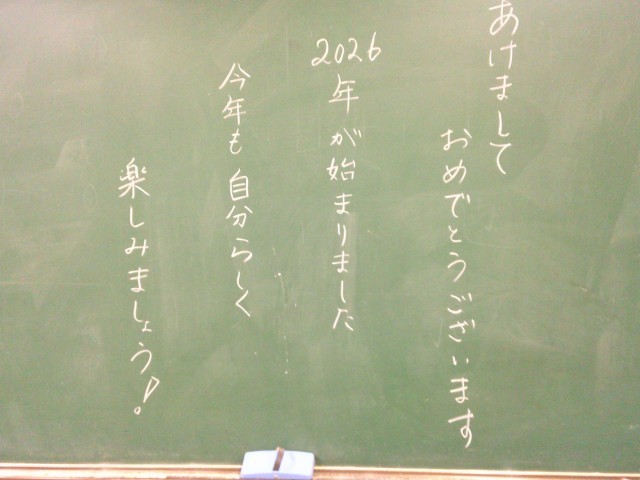 あけまして
おめでとうございます
2026年が始まりました
今年も自分らしく
楽しみましょう！